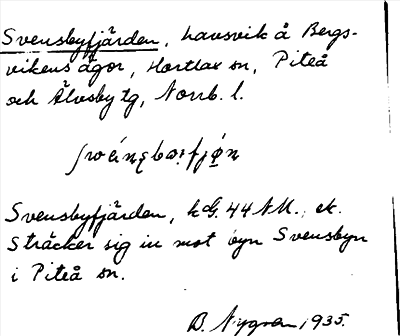 Svensbyfjärden, havsvik å Bergs-
vikens ägor, Hortlax sn, Piteå
och Älvsby tg, Norrb. l.
Svensbyfjärden, k.G. 44 NM., ek.
Sträcker sig in mot byn Svensbyn
i Piteå sn.
B. Nygren, 1935.